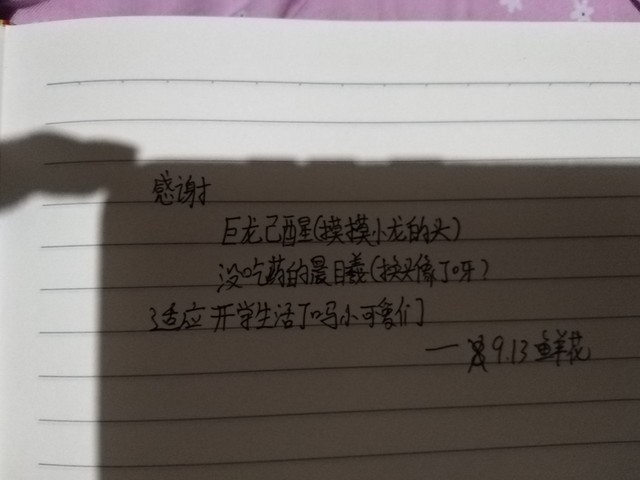 感谢
巨龙已醒(摸摸小龙的头)
没吃药的晨曦(换头像了呀?
适应开学生活了吗小可爱们
—9.13鲜花